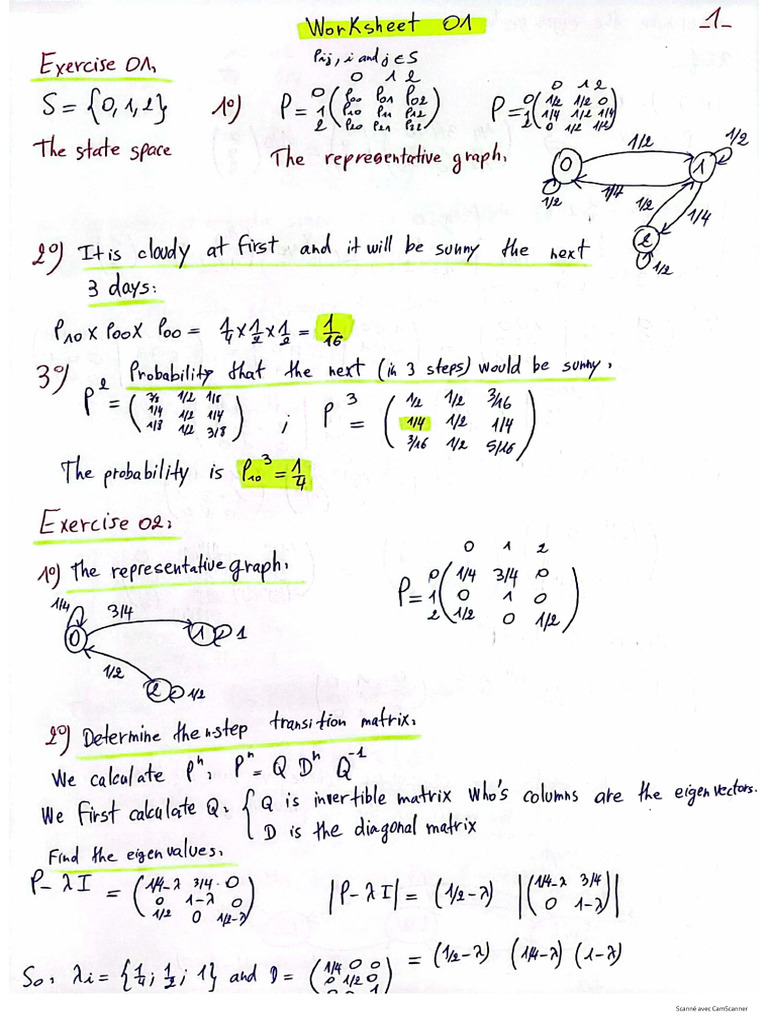 Worksheet 01
-1-
Exercise 01.
Pij, i and j ∈ S
S = {0,1,2} 1º) P = 
0 1 2
0 (P00 P01 P02
1 P10 P11 P12
2 P20 P21 P22)
P =
0 1 2
0 (1/2 1/2 0
1 1/4 1/2 1/4
2 0 1/2 1/2)
The state space The representative graph.
0 1 2 1/2 1/2 1/4 1/2 1/2 1/4 1/2
2º) It is cloudy at first and it will be sunny the next
3 days:
P10 x P00 x P00 = 1/4 x 1/2 x 1/2 = 1/16
3º) Probability that the next (in 3 steps) would be sunny.
P² = (3/8 1/2 1/8
1/4 1/2 1/4
1/8 1/2 3/8) ;
P³ = (1/2 1/2 3/16
1/4 1/2 1/4
3/16 1/2 5/16)
The probability is P10³ = 1/4
Exercise 02:
1º) The representative graph.
P =
0 1 2
0 (1/4 3/4 0
1 0 1 0
2 1/2 0 1/2)
1/4 3/4 0 1 1 1/2 2 1/2
2º) Determine the n-step transition matrix.
We calculate Pⁿ. Pⁿ = Q Dⁿ Q⁻¹
We first calculate Q. { Q is invertible matrix who's columns are the eigen vectors.
D is the diagonal matrix
Find the eigen values.
P - λI = (1/4-λ 3/4 0
0 1-λ 0
1/2 0 1/2-λ)
|P - λI| = (1/2-λ) |(1/4-λ 3/4
0 1-λ)|
= (1/2-λ) (1/4-λ) (1-λ)
So, λi = {1/4; 1/2; 1} and D = (1/4 0 0
0 1/2 0
0 0 1)
Scanné avec CamScanner